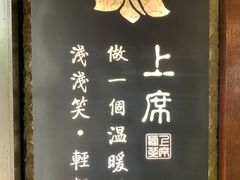 上席
做一個溫暖
淺淺笑·輕